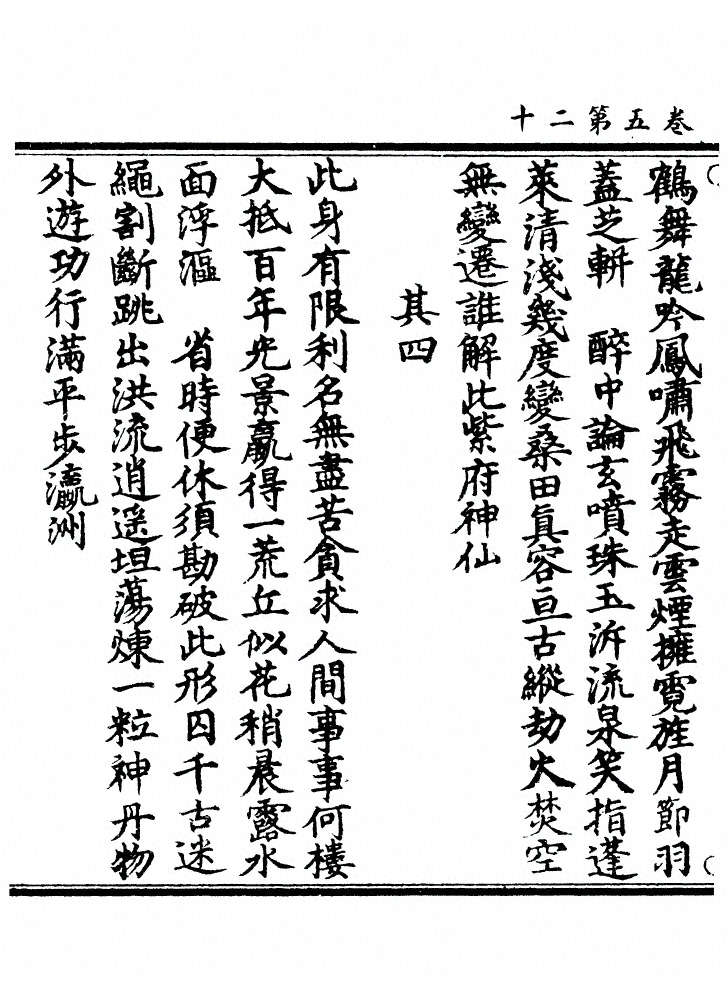 卷五第二十
鶴舞龍吟鳳嘯飛霧走雲煙擁霓旌月節羽
蓋芝軿　醉中論玄噴珠玉泝流泉笑指蓬
萊清淺幾度變桑田眞容亘古縱劫火焚空
無變遷誰解此紫府神仙
其四
此身有限利名無盡苦貪求人間事事何樓
大抵百年光景贏得一荒丘似花稍晨露水
面浮漚　省時便休須勘破此形囚千古迷
繩割斷跳出洪流逍遥坦蕩煉一粒神丹物
外遊功行滿平步瀛洲